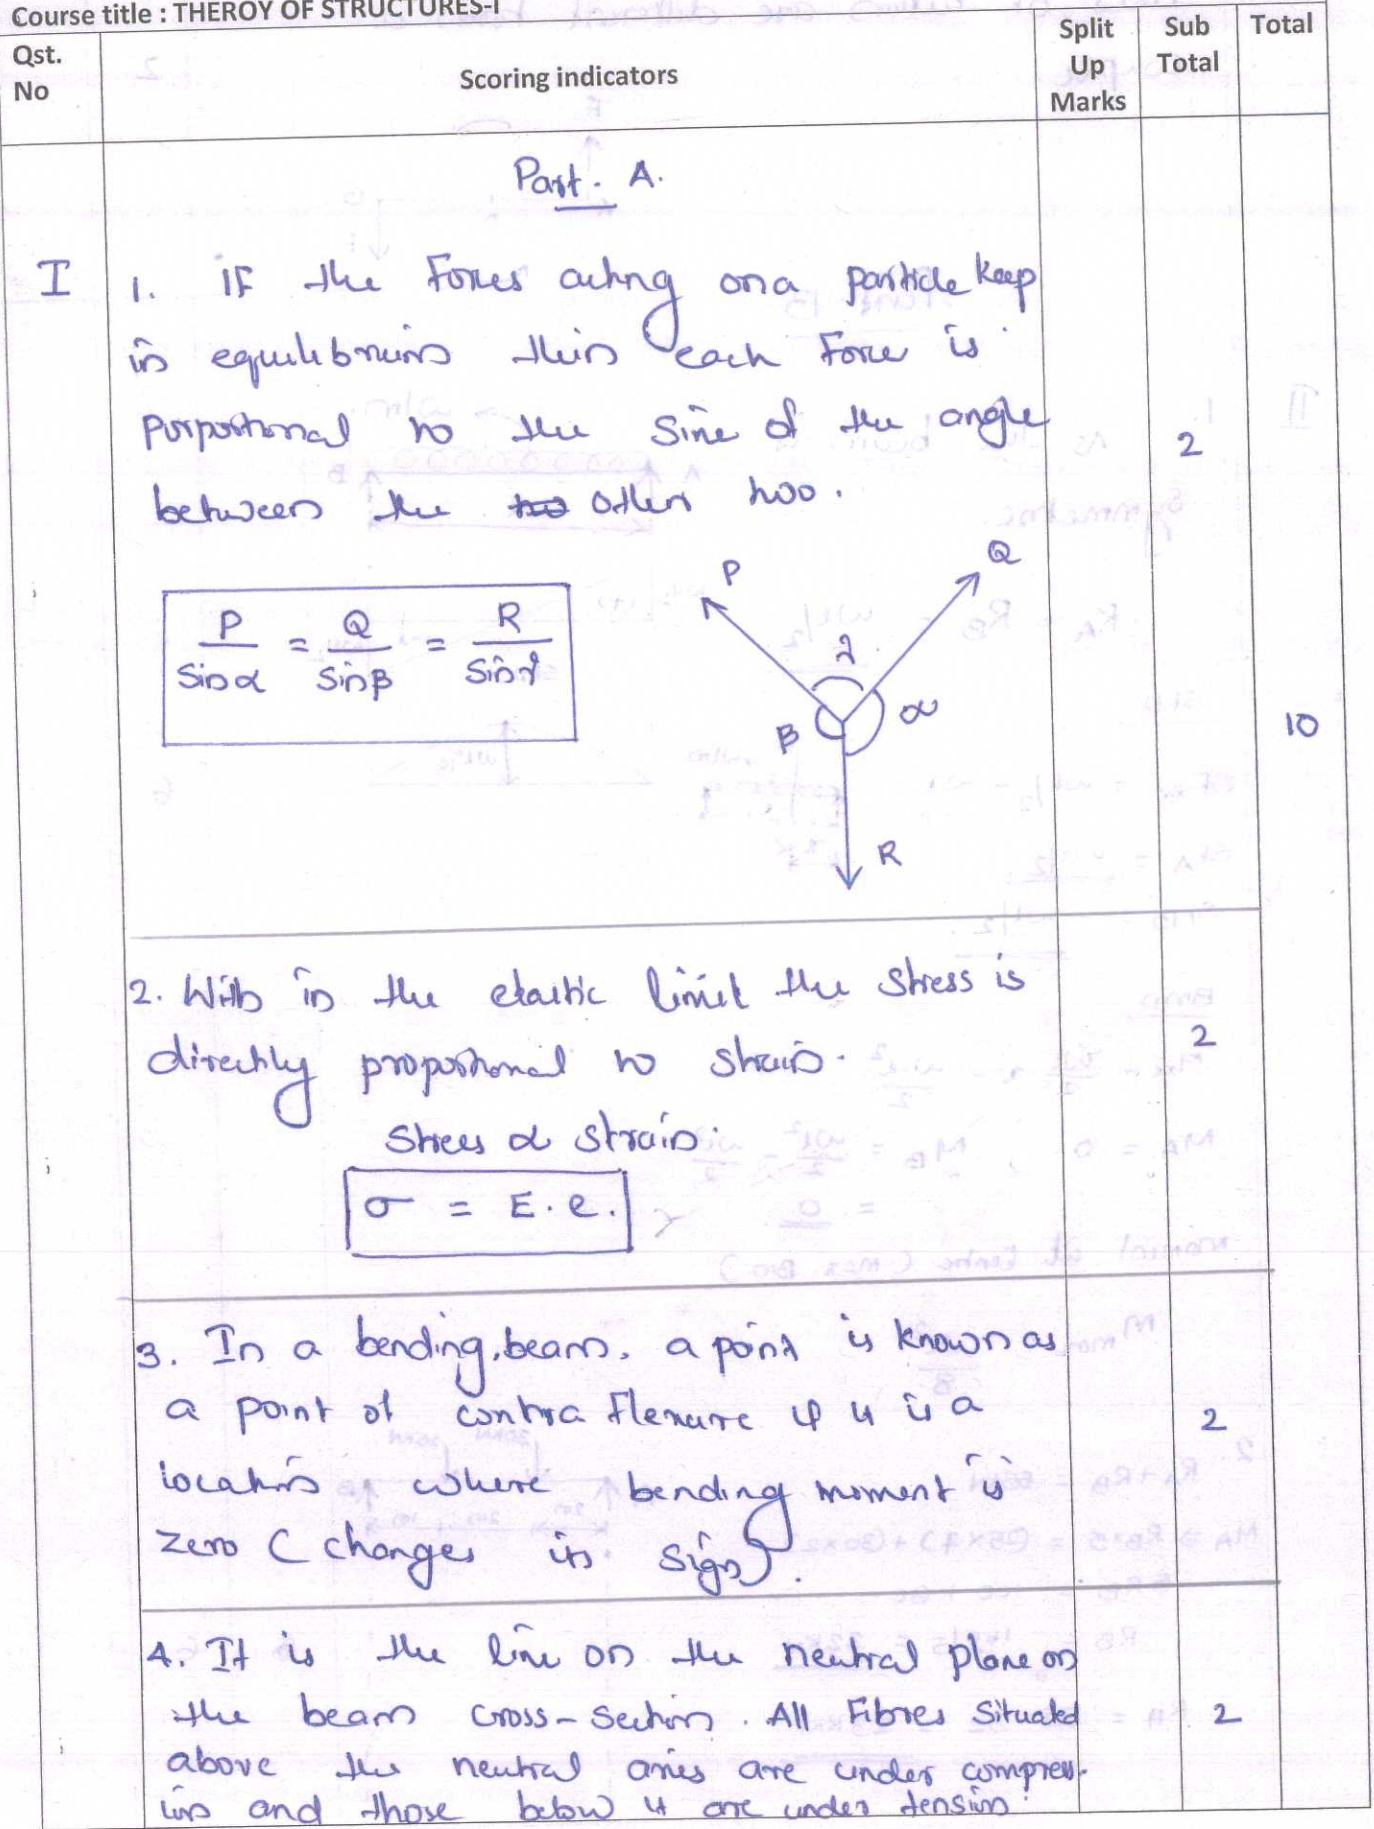 Course title : THEROY OF STRUCTURES-I
Qst. No
Scoring indicators
Split Up Marks
Sub Total
Total
Part. A.
I
1. IF the Forces acting on a particle keep
in equilibrium then each Force is
Purportional to the Sine of the angle
between the two other two.
2
P/Sinα = Q/Sinβ = R/Sinγ
P
Q
γ
β
α
R
10
2. With in the elastic limit the stress is
directly proportional to strain.
2
Stress α strain.
σ = E.e.
3. In a bending, beam, a point is known as
a point of contra flexure if it is a
location where bending moment is
zero (changes its sign).
2
4. It is the line on the neutral plane on
the beam cross-section. All Fibres Situated
above the neutral axis are under compress-
ion and those below it are under tension.
2